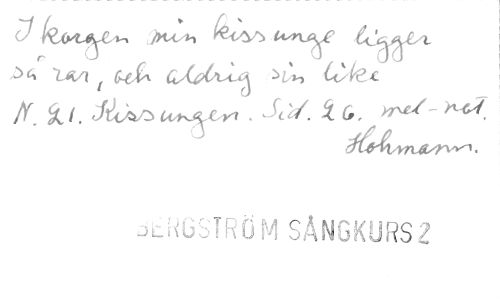 I korgen min kissunge ligger
så rar, och aldrig sin like
N. 21. Kissungen. Sid. 26. mel-not.
Hohmann.
BERGSTRÖM SÅNGKURS 2